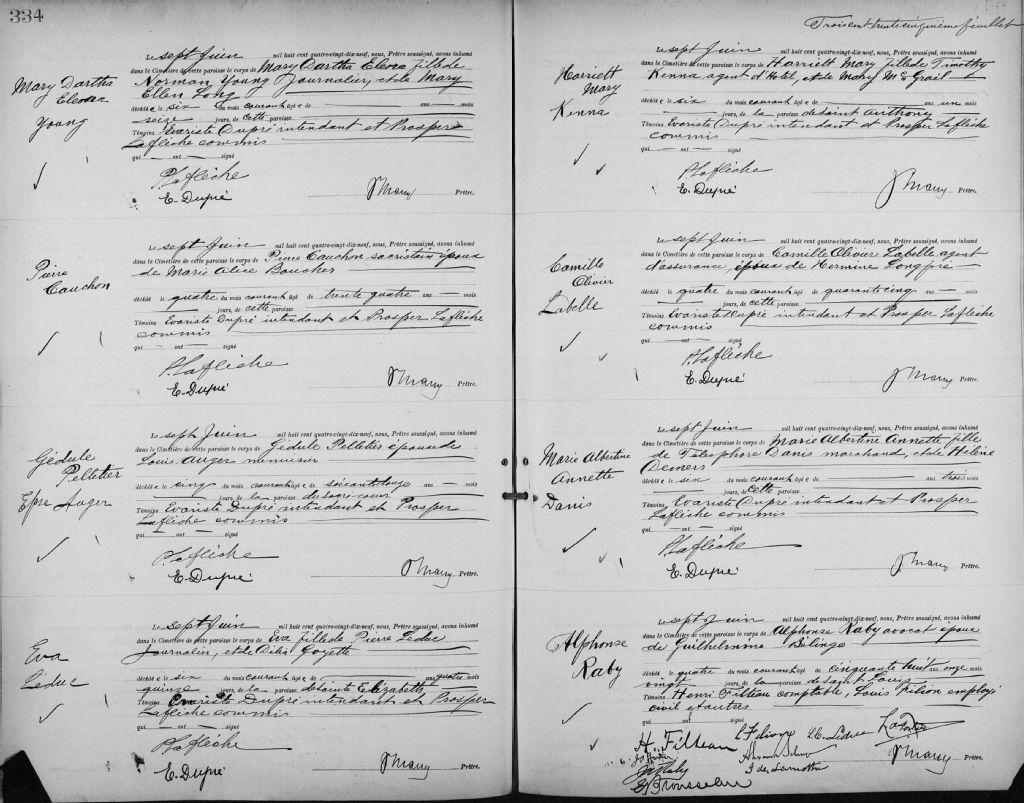 334
Mary Dartha
Elenora
Young
Le sept Juin mil huit cent quatre-vingt-dix-neuf, nous, Prêtre soussigné, avons inhumé
dans le Cimetière de cette paroisse le corps de Mary Dartha Elenora fille de
Norman Young Journalier, et de Mary
Ellen Long
décédée le six du mois courant âgée de ans mois
seize jours, de cette paroisse.
Témoins Evariste Dupré intendant et Prosper
Laflèche commis
qui — ont — signé
P. Laflèche
E. Dupré
Prêtre.
Pierre
Cauchon
Le sept Juin mil huit cent quatre-vingt-dix-neuf, nous, Prêtre soussigné, avons inhumé
dans le Cimetière de cette paroisse le corps de Pierre Cauchon sacristain époux
de Marie Alice Boucher
décédé le quatre du mois courant âgé de trente quatre ans — mois
jours, de cette paroisse.
Témoins Evariste Dupré intendant et Prosper Laflèche
commis
qui — ont — signé
P. Laflèche
E. Dupré
Prêtre.
Gédule
Pelletier
Epse Auger
Le sept Juin mil huit cent quatre-vingt-dix-neuf, nous, Prêtre soussigné, avons inhumé
dans le Cimetière de cette paroisse le corps de Gédule Pelletier épouse de
Louis Auger menuisier
décédée le cinq du mois courant âgée de ans — mois
jours, de la paroisse du sacré-coeur
Témoins Evariste Dupré intendant et Prosper
Laflèche commis
qui — ont — signé
P. Laflèche
E. Dupré
Prêtre.
Eva
Leduc
Le sept Juin mil huit cent quatre-vingt-dix-neuf, nous, Prêtre soussigné, avons inhumé
dans le Cimetière de cette paroisse le corps de Eva fille de Pierre Leduc
Journalier, et de Délia Goyette
décédée le six du mois courant âgée de ans quatre mois
quinze jours, de la paroisse de sainte Elizabeth
Témoins Evariste Dupré intendant et Prosper
Laflèche commis
qui — ont — signé
P. Laflèche
E. Dupré
Prêtre.
Trois cent trente cinquième feuillet
Harriett
Mary
Kenna
Le sept Juin mil huit cent quatre-vingt-dix-neuf, nous, Prêtre soussigné, avons inhumé
dans le Cimetière de cette paroisse le corps de Harriett Mary fille de Timothy
Kenna agent d'Hotel, et de Mary McGrail
décédée le six du mois courant âgée de ans un mois
jours, de la paroisse de saint Anthony
Témoins Evariste Dupré intendant et Prosper Laflèche
commis
qui — ont — signé
P. Laflèche
E. Dupré
Prêtre.
Camille
Olivier
Labelle
Le sept Juin mil huit cent quatre-vingt-dix-neuf, nous, Prêtre soussigné, avons inhumé
dans le Cimetière de cette paroisse le corps de Camille Olivier Labelle agent
d'assurance, époux de Hermine Longpré
décédé le quatre du mois courant âgé de quarante cinq ans — mois
jours, de cette paroisse
Témoins Evariste Dupré intendant et Prosper Laflèche
commis
qui — ont — signé
P. Laflèche
E. Dupré
Prêtre.
Marie Albertine
Annette
Danis
Le sept Juin mil huit cent quatre-vingt-dix-neuf, nous, Prêtre soussigné, avons inhumé
dans le Cimetière de cette paroisse le corps de Marie Albertine Annette fille
de Télesphore Danis marchand, et de Hélène
Demers
décédée le six du mois courant âgée de ans trois mois
jours, de cette paroisse.
Témoins Evariste Dupré intendant et Prosper
Laflèche commis
qui — ont — signé
P. Laflèche
E. Dupré
Prêtre.
Alphonse
Raby
Le sept Juin mil huit cent quatre-vingt-dix-neuf, nous, Prêtre soussigné, avons inhumé
dans le Cimetière de cette paroisse le corps de Alphonse Raby avocat époux
de Guilhelmina Bélinge
décédé le quatre du mois courant âgé de cinquante huit ans onze mois
vingt jours, de la paroisse de saint Louis
Témoins Henri Filteau comptable, Louis employé
civil et autres
qui ont signé
H. Filteau
E. Brousseau
Prêtre.